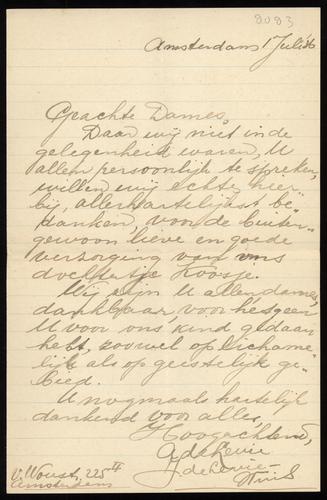 8083
Amsterdam 1 Juli 36
Geachte Dames,
Daar wij niet in de
gelegenheid waren, U
allen persoonlijk te spreken,
willen wij echter hier
bij, allerhartelijkst be
danken, voor de buiten-
gewoon lieve en goede
verzorging van ons
dochtertje Roosje.
Wij zijn U allen dames,
dankbaar voor hetgeen
U voor ons kind gedaan
hebt, zoowel op lichame-
lijk als op geestelijk ge-
bied.
U nogmaals hartelijk
dankend voor alles,
Hoogachtend,
v. Woust. 225 II
Amsterdam